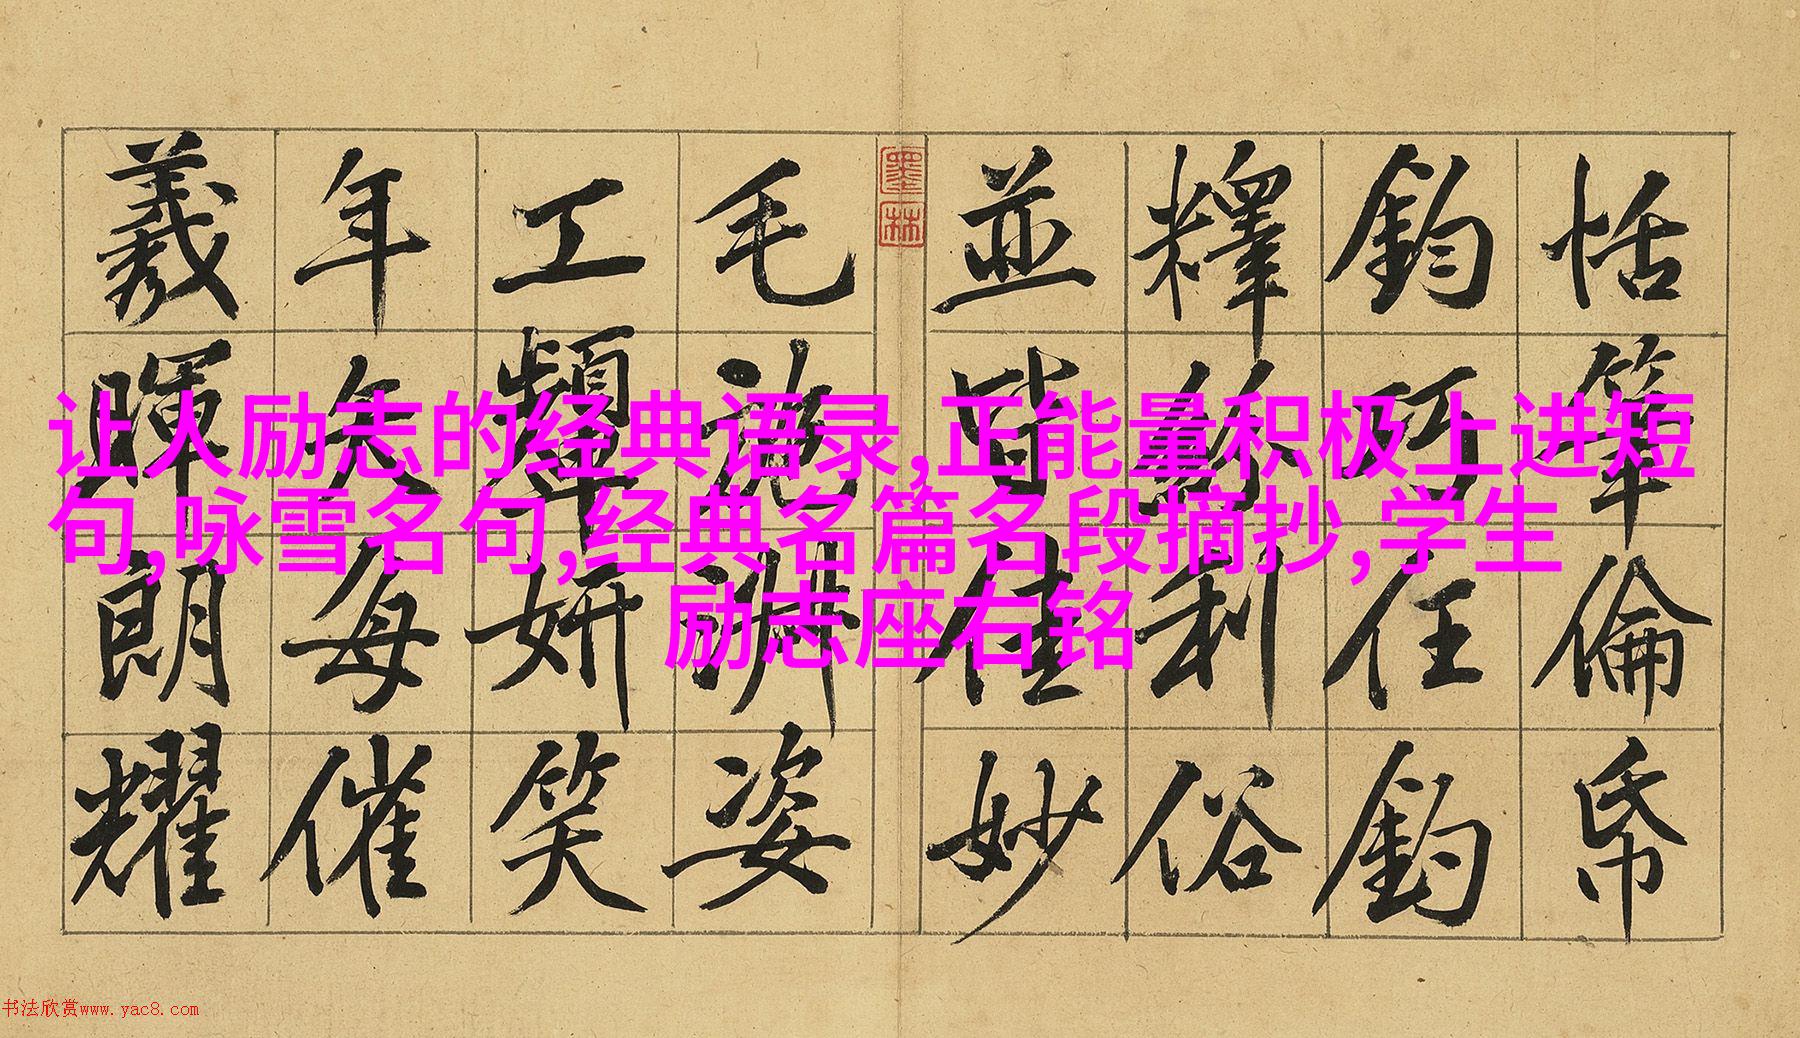 让人励志的经典语录,正能量积极上进短
句,咏雪名句,经典名篇名段摘抄,学生
励志座右铭
恬筆倫帋
鈞巧任釣
釋紛利俗
並皆佳妙
毛施淑姿
工顰妍笑
年矢每催
羲暉朗耀
墨林
书法欣赏www.yac8.com